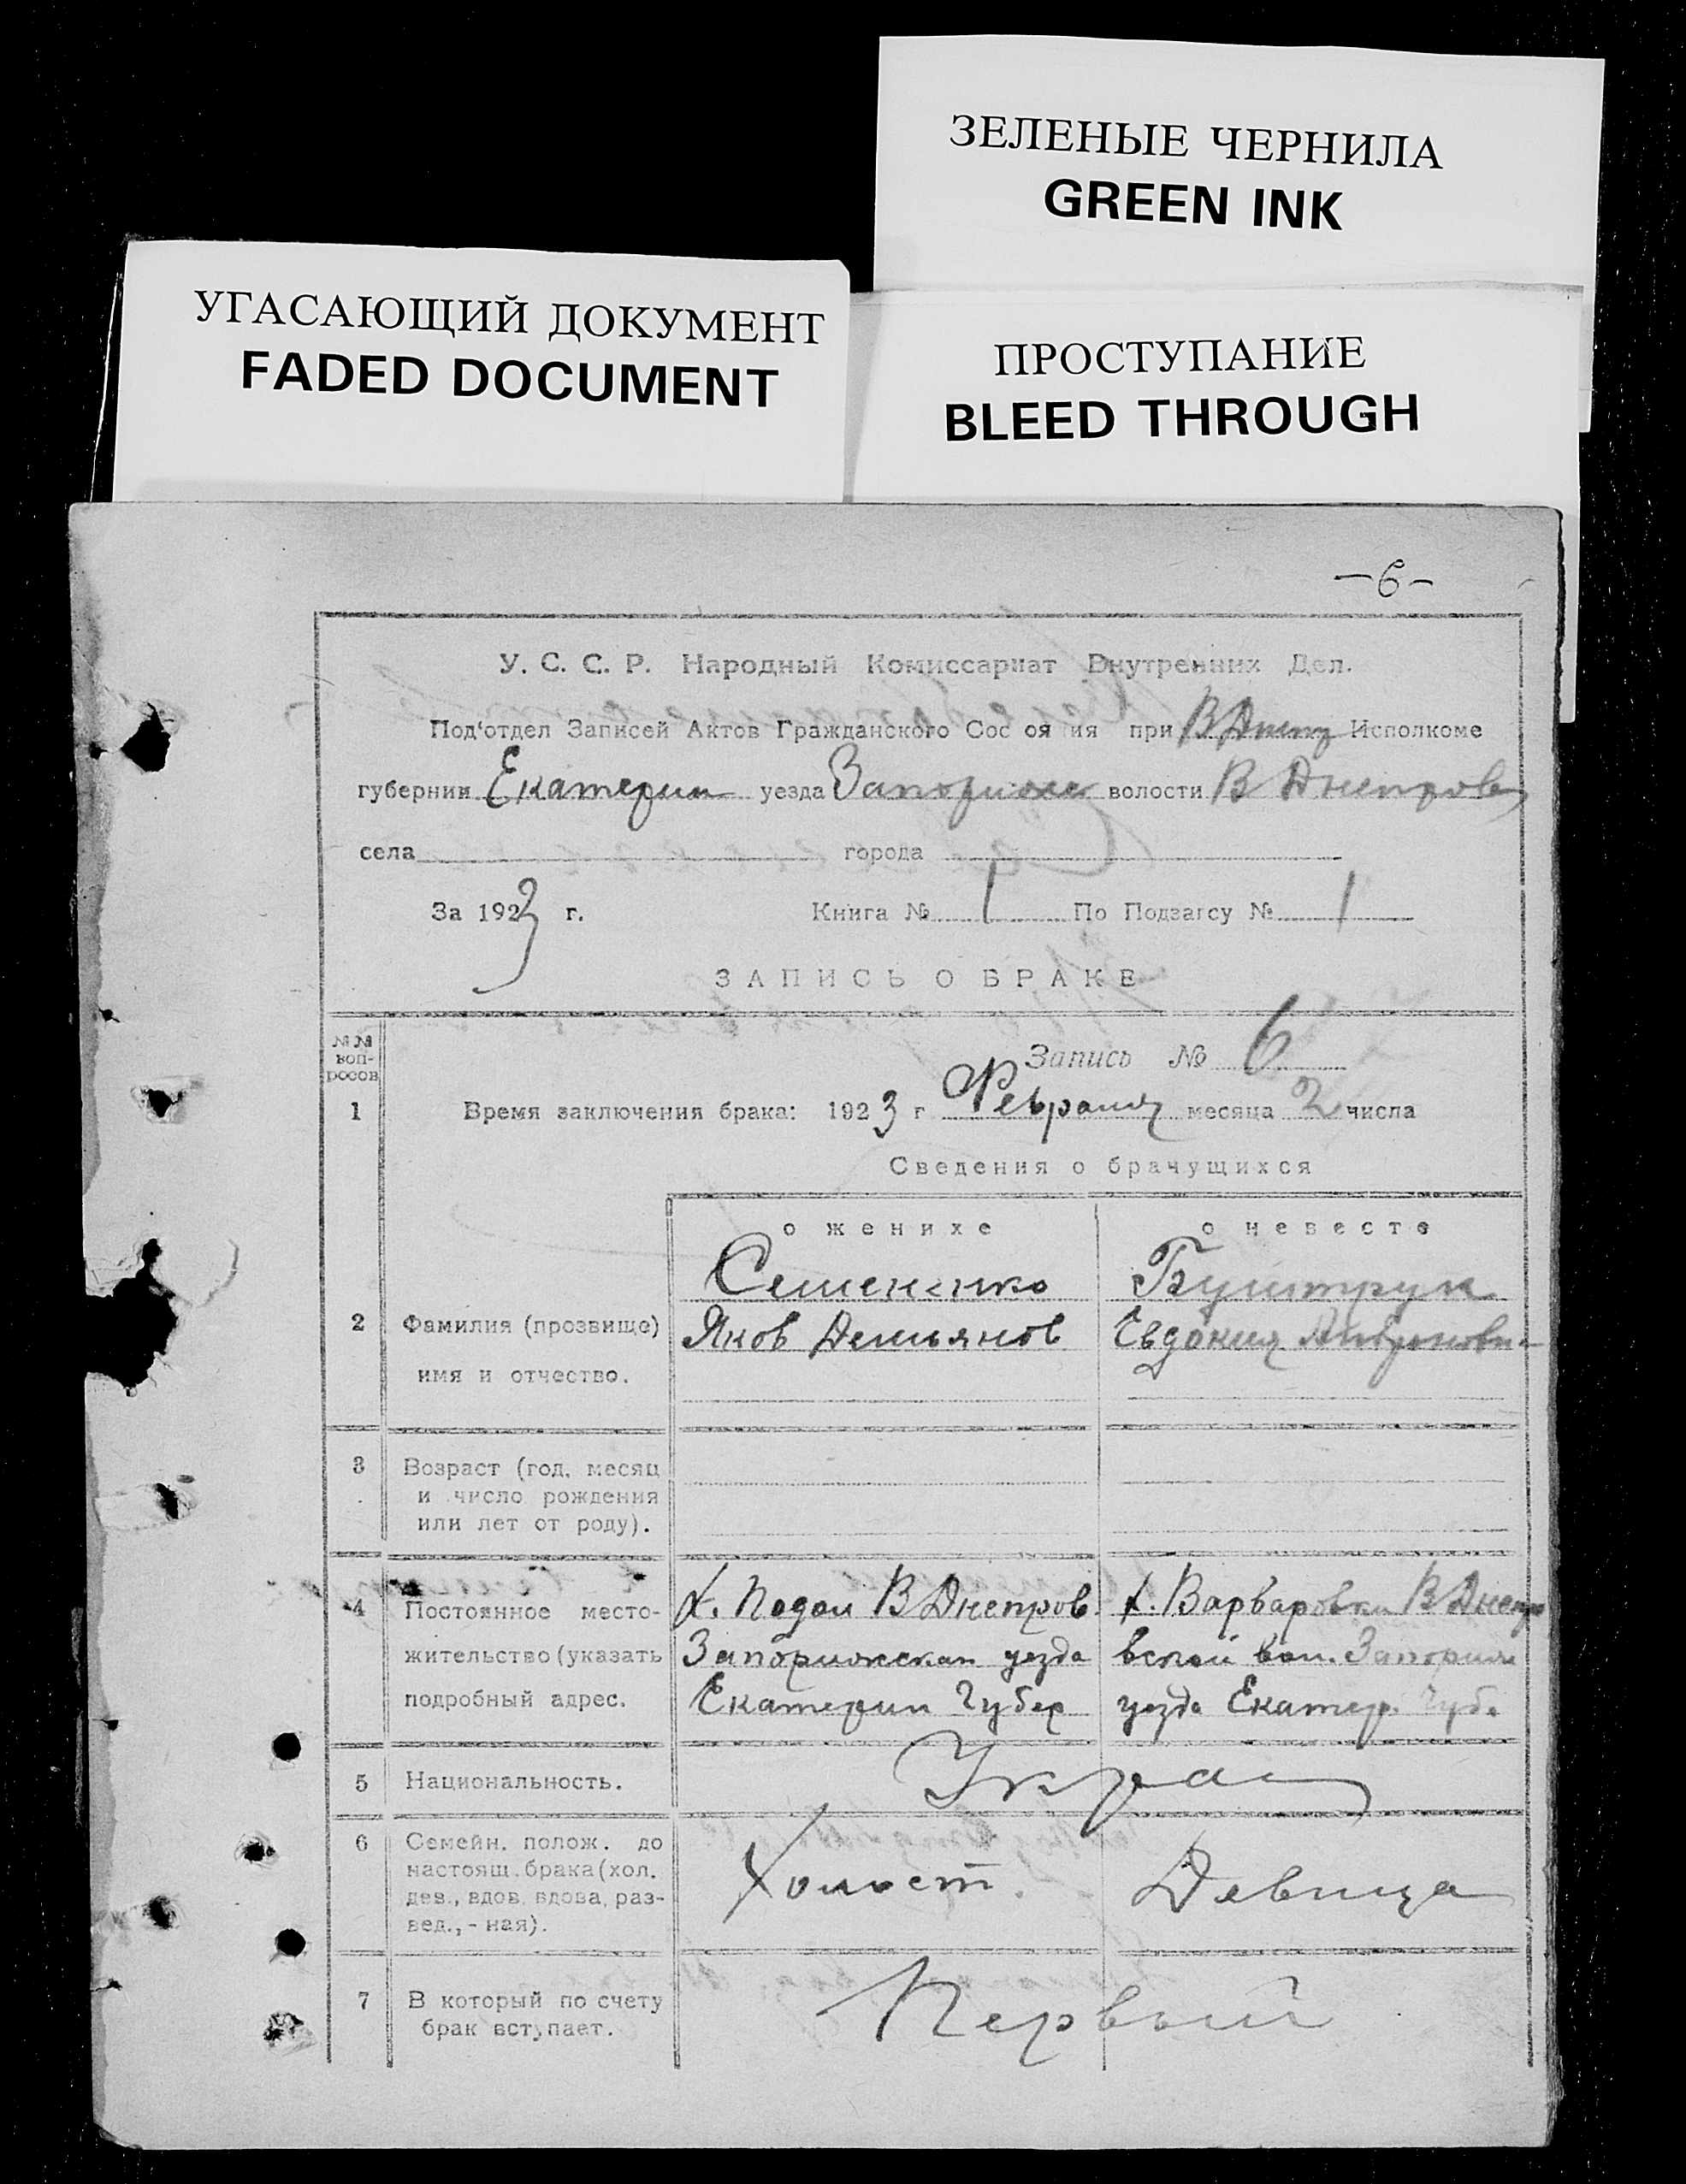 ЗЕЛЕНЫЕ ЧЕРНИЛА
GREEN INK
УГАСАЮЩИЙ ДОКУМЕНТ
FADED DOCUMENT
ПРОСТУПАНИЕ
BLEED THROUGH
-6-
У. С. С. Р. Народный Комиссариат Внутренних Дел.
Под'отдел Записей Актов Гражданского Сос оя ия при В Днепр Исполкоме
губернии Екатерин уезда Запорижск волости В Днепров
села города
За 1923 г. Книга № 1 По Подзагсу № 1
ЗАПИСЬ О БРАКЕ
№№ воп- росов
Запись № 6
1 Время заключения брака: 1923 г Февраля месяца 2 числа
Сведения о брачущихся
о женихе о невесте
Семененко
2 Фамилия (прозвище) Яков Демьянов Евдокия
имя и отчество.
3 Возраст (год, месяц
и число рождения
или лет от роду).
4 Постоянное место- х. Подол В Днепров. х. Варваровки В Днепр
жительство (указать Запорижская уезда вской вол. Запориж
подробный адрес. Екатерин Губер уезда Екатер. Губ.
5 Национальность. Украин
6 Семейн. полож. до
настоящ. брака (хол. Холост. Девица
дев., вдов, вдова, раз-
вед., - ная).
7 В который по счету Первый
брак вступает.